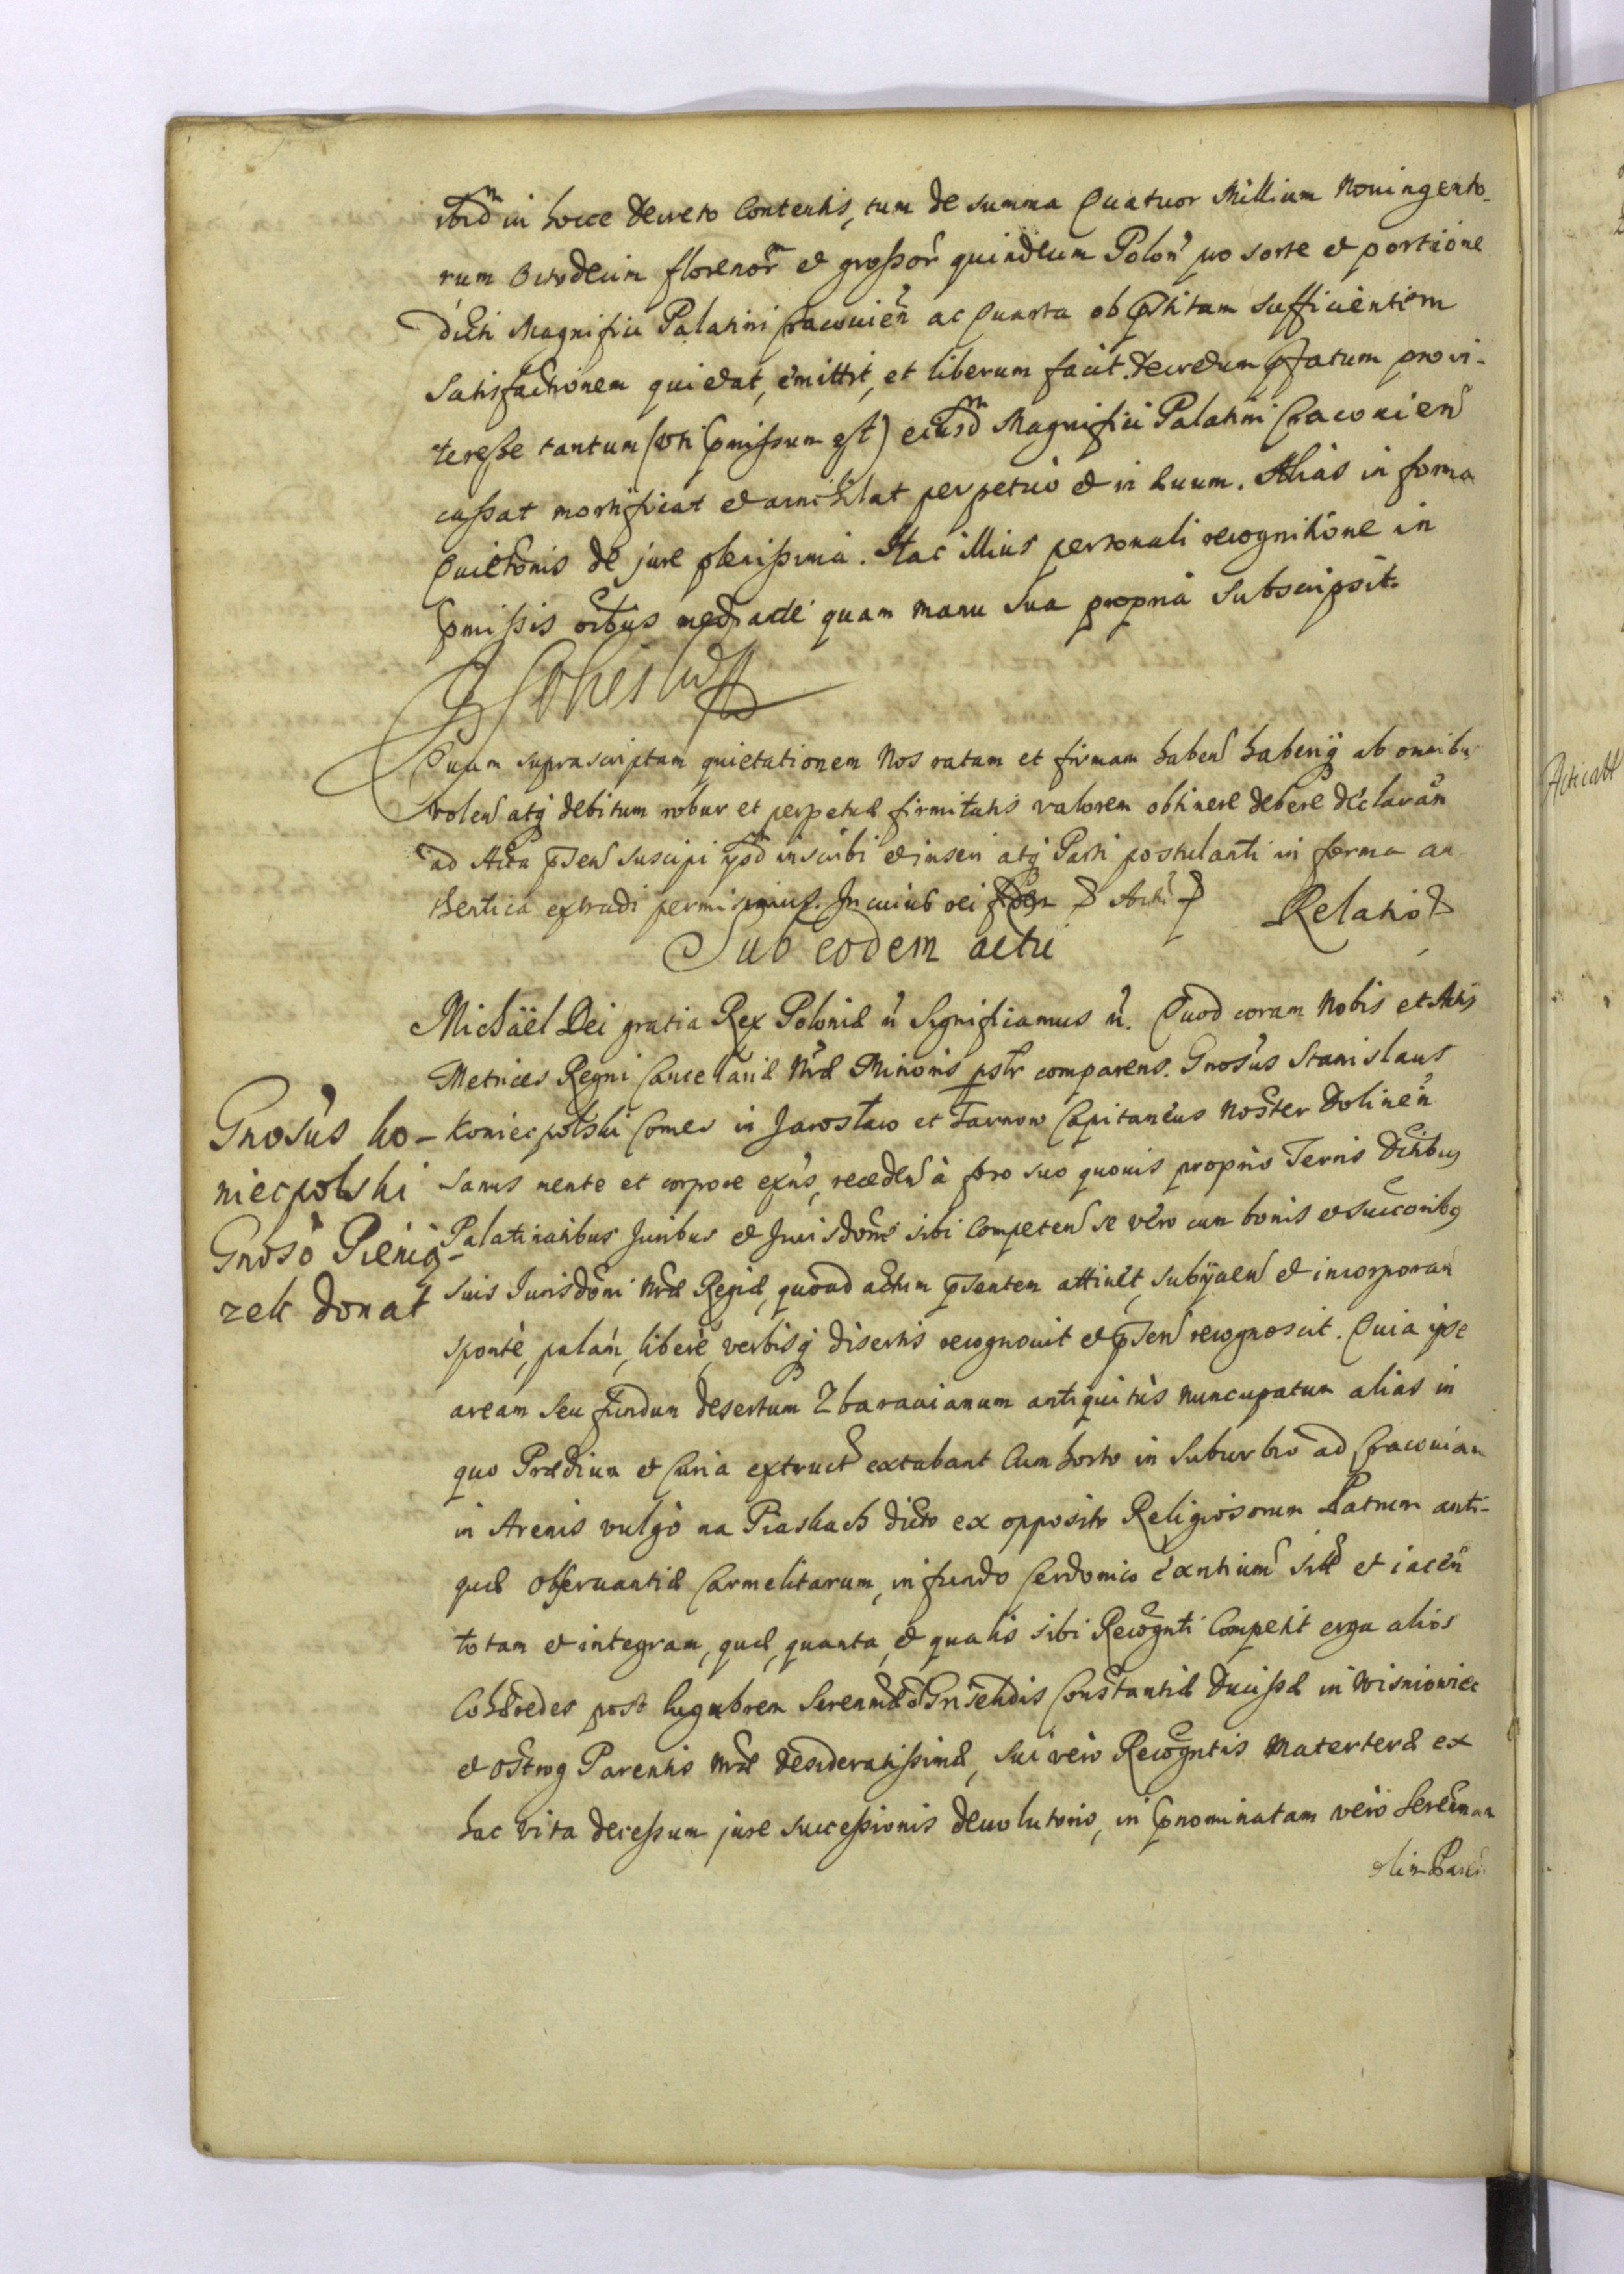 ibidm in hocce decreto contentis, tum de summa Quatuor Millium Noningento-
rum Octodecim florenor et grossor quindecim Polon pro sorte et portione
dicti Magnifici Palatini Cracouien ac quarta ob pstitam sufficientem
Satisfactionem quietat, emittit, et liberum facit. decretum pfatum pro vi-
teresse tantum (vti pmissum est) eiusdm Magnifici Palatini Cracouien
cassat mortificat et annihilat perpetuo et in æuum. Alias in forma
Quiettonis de jure plenissima. Hac illius personali recognitione in
pmissis oibus mediante quam manu sua propria subscripsit.
Quam suprascriptam quietationem Nos ratam et firmam haben haberiq ab omnibus
volen atq debitum robur et perpetuæ firmitatis valorem obtinere debere declaran
ad Acta psen suscipi ipsdm inscribi et inseri atq Parti postulanti in forma au
thentica extradi permisimus. In cuius rei fidem Relatio
Sub eodem actu
Michaël Dei gratia Rex Poloniæ Significamus. Quod coram Nobis et Actis
Metrices Regni Cancellariæ Nræ Minoris pslr comparens. Gnosus Stanislaus
Koniecpolski Comes in Jarosław et Tarnow Capitaneus Noster Dolinen
sanus mente et corpore exns, receden à foro suo quouis proprio Terris dictibus
Palatinatibus Juribus et Jurisdoni sibi competen se vero cum bonis et succoribus
suis Jurisdoni Nræ Regiæ, quoad actum psentem attinet, subijcien et incorporan
sponte, palam, libere, verbisq disertis recognouit et psen recognoscit. Quia ipse
aream seu fundum desertum Zbarauianum antiquitùs nuncupatum alias in
quo Prædium et Curia extruct extabant Cum horto in suburbio ad Cracouiam
in Arenis vulgò na Piaskach dicto ex opposito Religiosorum Patrum anti-
quæ obseruantiæ Carmelitarum, in fundo Cerdonico exantium sitt et iacen
totam et integram, quæ, quanta, et qualis sibi Recognti Competit erga alios
Cohæredes post lugubrem Serenmæ Griseldis Constantiæ Ducissæ in Wisniowiec
et Ostrog Parentis Nræ desideratissimæ, sui vero Recogntis Materteræ ex
hac vita decessum jure successionis deuolutorio, in pnominatam vero Serenmam
olim Paren
Gnosus Ko-
niecpolski
Gnoso Pienią-
zek donat
Acticatt